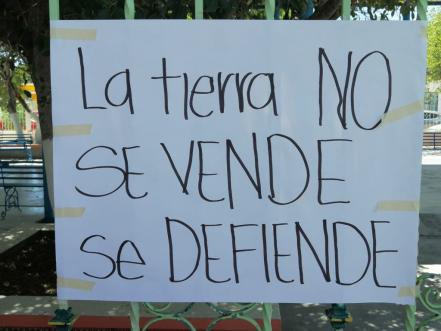 La tierra NO
SE VENDE
se DEFIENDE